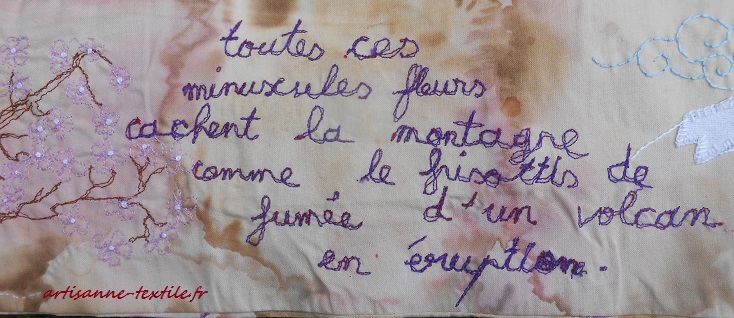 toutes ces
minuscules fleurs
cachent la montagne
comme le frisottis de
fumée d'un volcan
en éruption.
artisanne-textile.fr